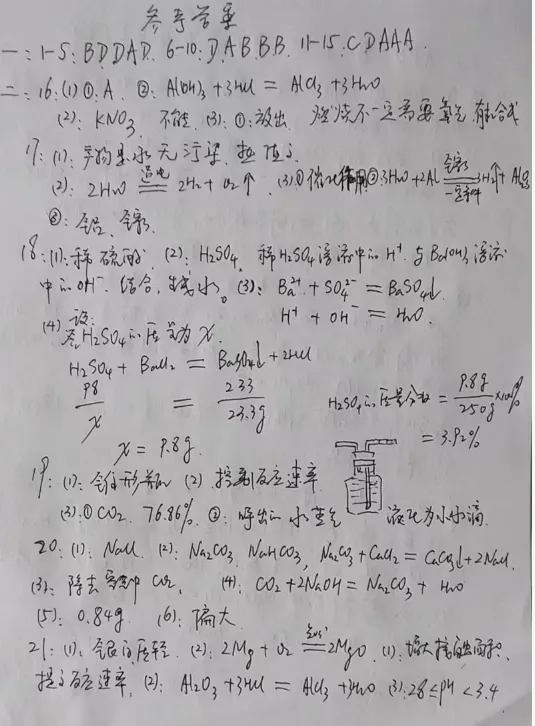 参考答案
一: 1-5: BDDAD. 6-10: DABBB. 11-15: CDAAA.
二: 16: (1) ①: A. ②: Al(OH)₃ + 3HCl = AlCl₃ + 3H₂O
(2): KNO₃ 不能 (3): ①: 放出 燃烧不一定需要氧气
17: (1): 产物是水无污染, 热值高
(2): 2H₂O =通电= 2H₂↑ + O₂↑ (3) ① 催化作用 ② 3H₂O + 2Al =镓, 一定条件= 3H₂↑ + Al₂O₃
③: 铝、镓
18: (1): 稀硫酸. (2): H₂SO₄, 稀H₂SO₄溶液中的H⁺与Ba(OH)₂溶液
中的OH⁻结合, 生成水。 (3): Ba²⁺ + SO₄²⁻ = BaSO₄↓
(4) 设: H⁺ + OH⁻ = H₂O.
H₂SO₄的质量为x.
H₂SO₄ + BaCl₂ = BaSO₄↓ + 2HCl
98 = 233 H₂SO₄的质量分数 = 9.8g
x 23.3g 250g ×100%
x = 9.8g. = 3.92%
19: (1): 锥形瓶 (2) 控制反应速率
(3): ① CO₂ 76.86% ②: 呼出的水蒸气 液化为小水滴
20: (1): NaCl (2): Na₂CO₃ NaHCO₃, Na₂CO₃ + CaCl₂ = CaCO₃↓ + 2NaCl
(3): 除去空气中CO₂ (4): CO₂ + 2NaOH = Na₂CO₃ + H₂O
(5): 0.84g (6): 偏大
21: (1): 质轻 (2): 2Mg + O₂ =点燃= 2MgO (1): 增大接触面积,
提高反应速率, (2): Al₂O₃ + 3HCl = AlCl₃ + 3H₂O (3): 2.8≤pH<3.4